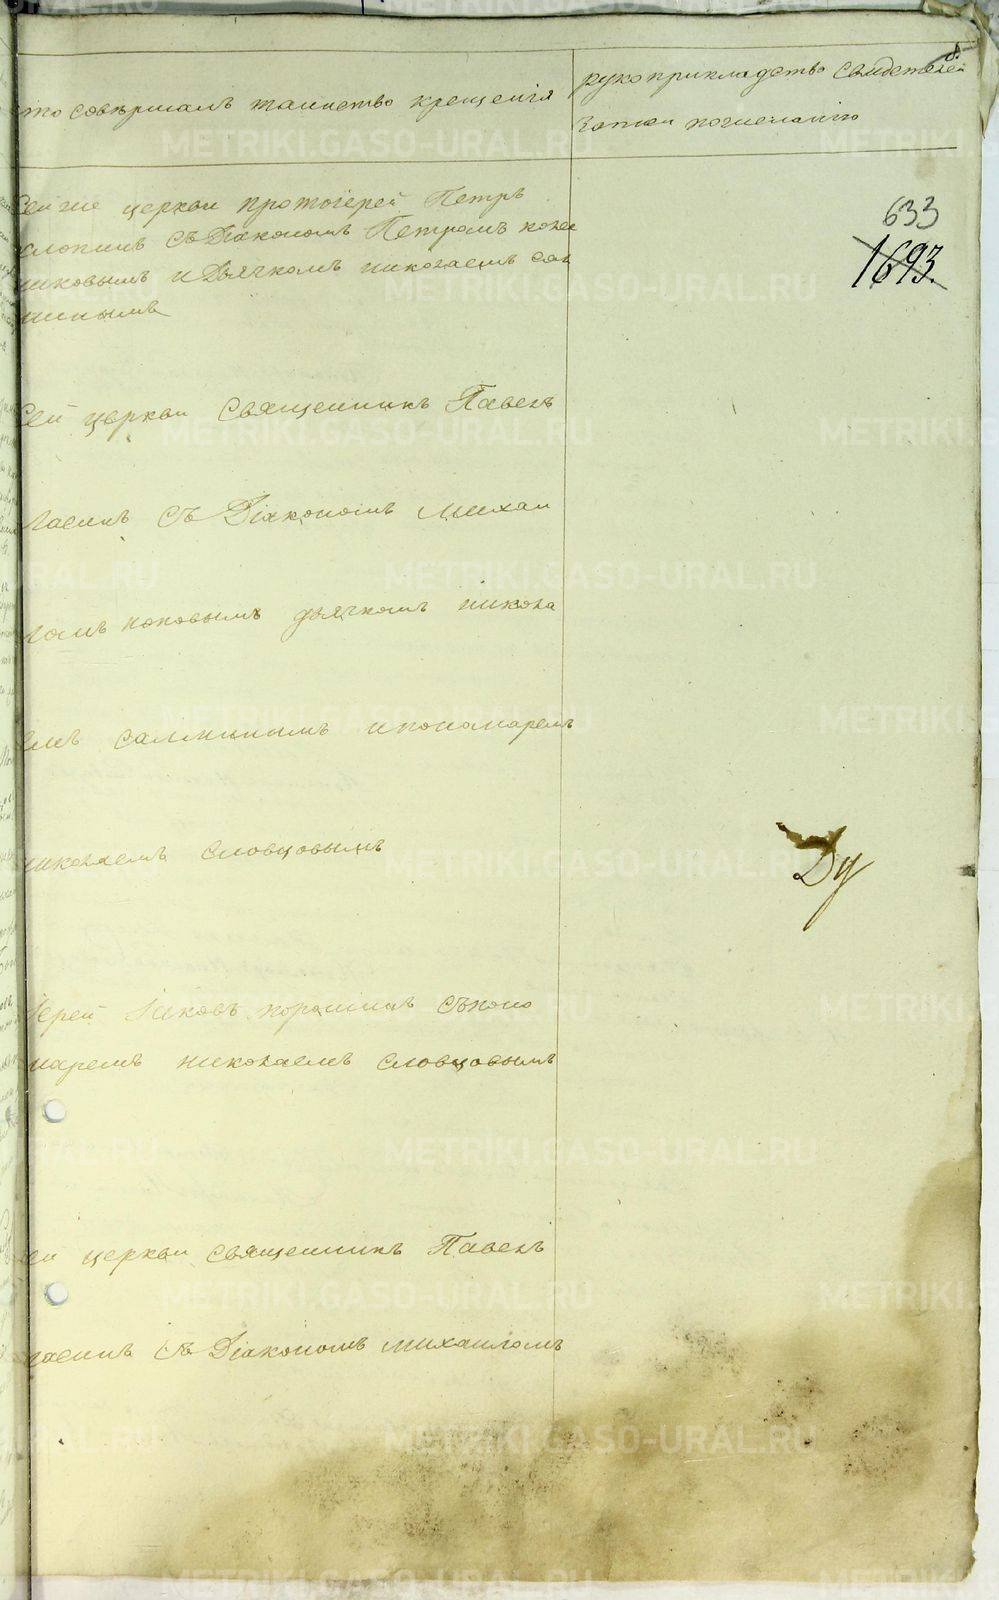 то совършалъ таинство крещенiя
рукоприкладство свидетелей
записи по желанiю
8.
Сей же церкви протоiерей Петръ
съ Дiакономъ Петромъ коже
никовымъ и Дьячкомъ николаемъ сал
нинымъ
633
1693.
Сей церкви Священникъ Павелъ
съ Дiакономъ михаи
ломъ поповымъ дьячкомъ никола
емъ салнинымъ и пономаремъ
николаемъ словцовымъ
Ду
Iерей Iаковъ порошинъ съ поно
маремъ николаемъ словцовымъ
сей церкви священникъ Павелъ
съ Дiакономъ михаиломъ
METRIKI.GASO-URAL.RU